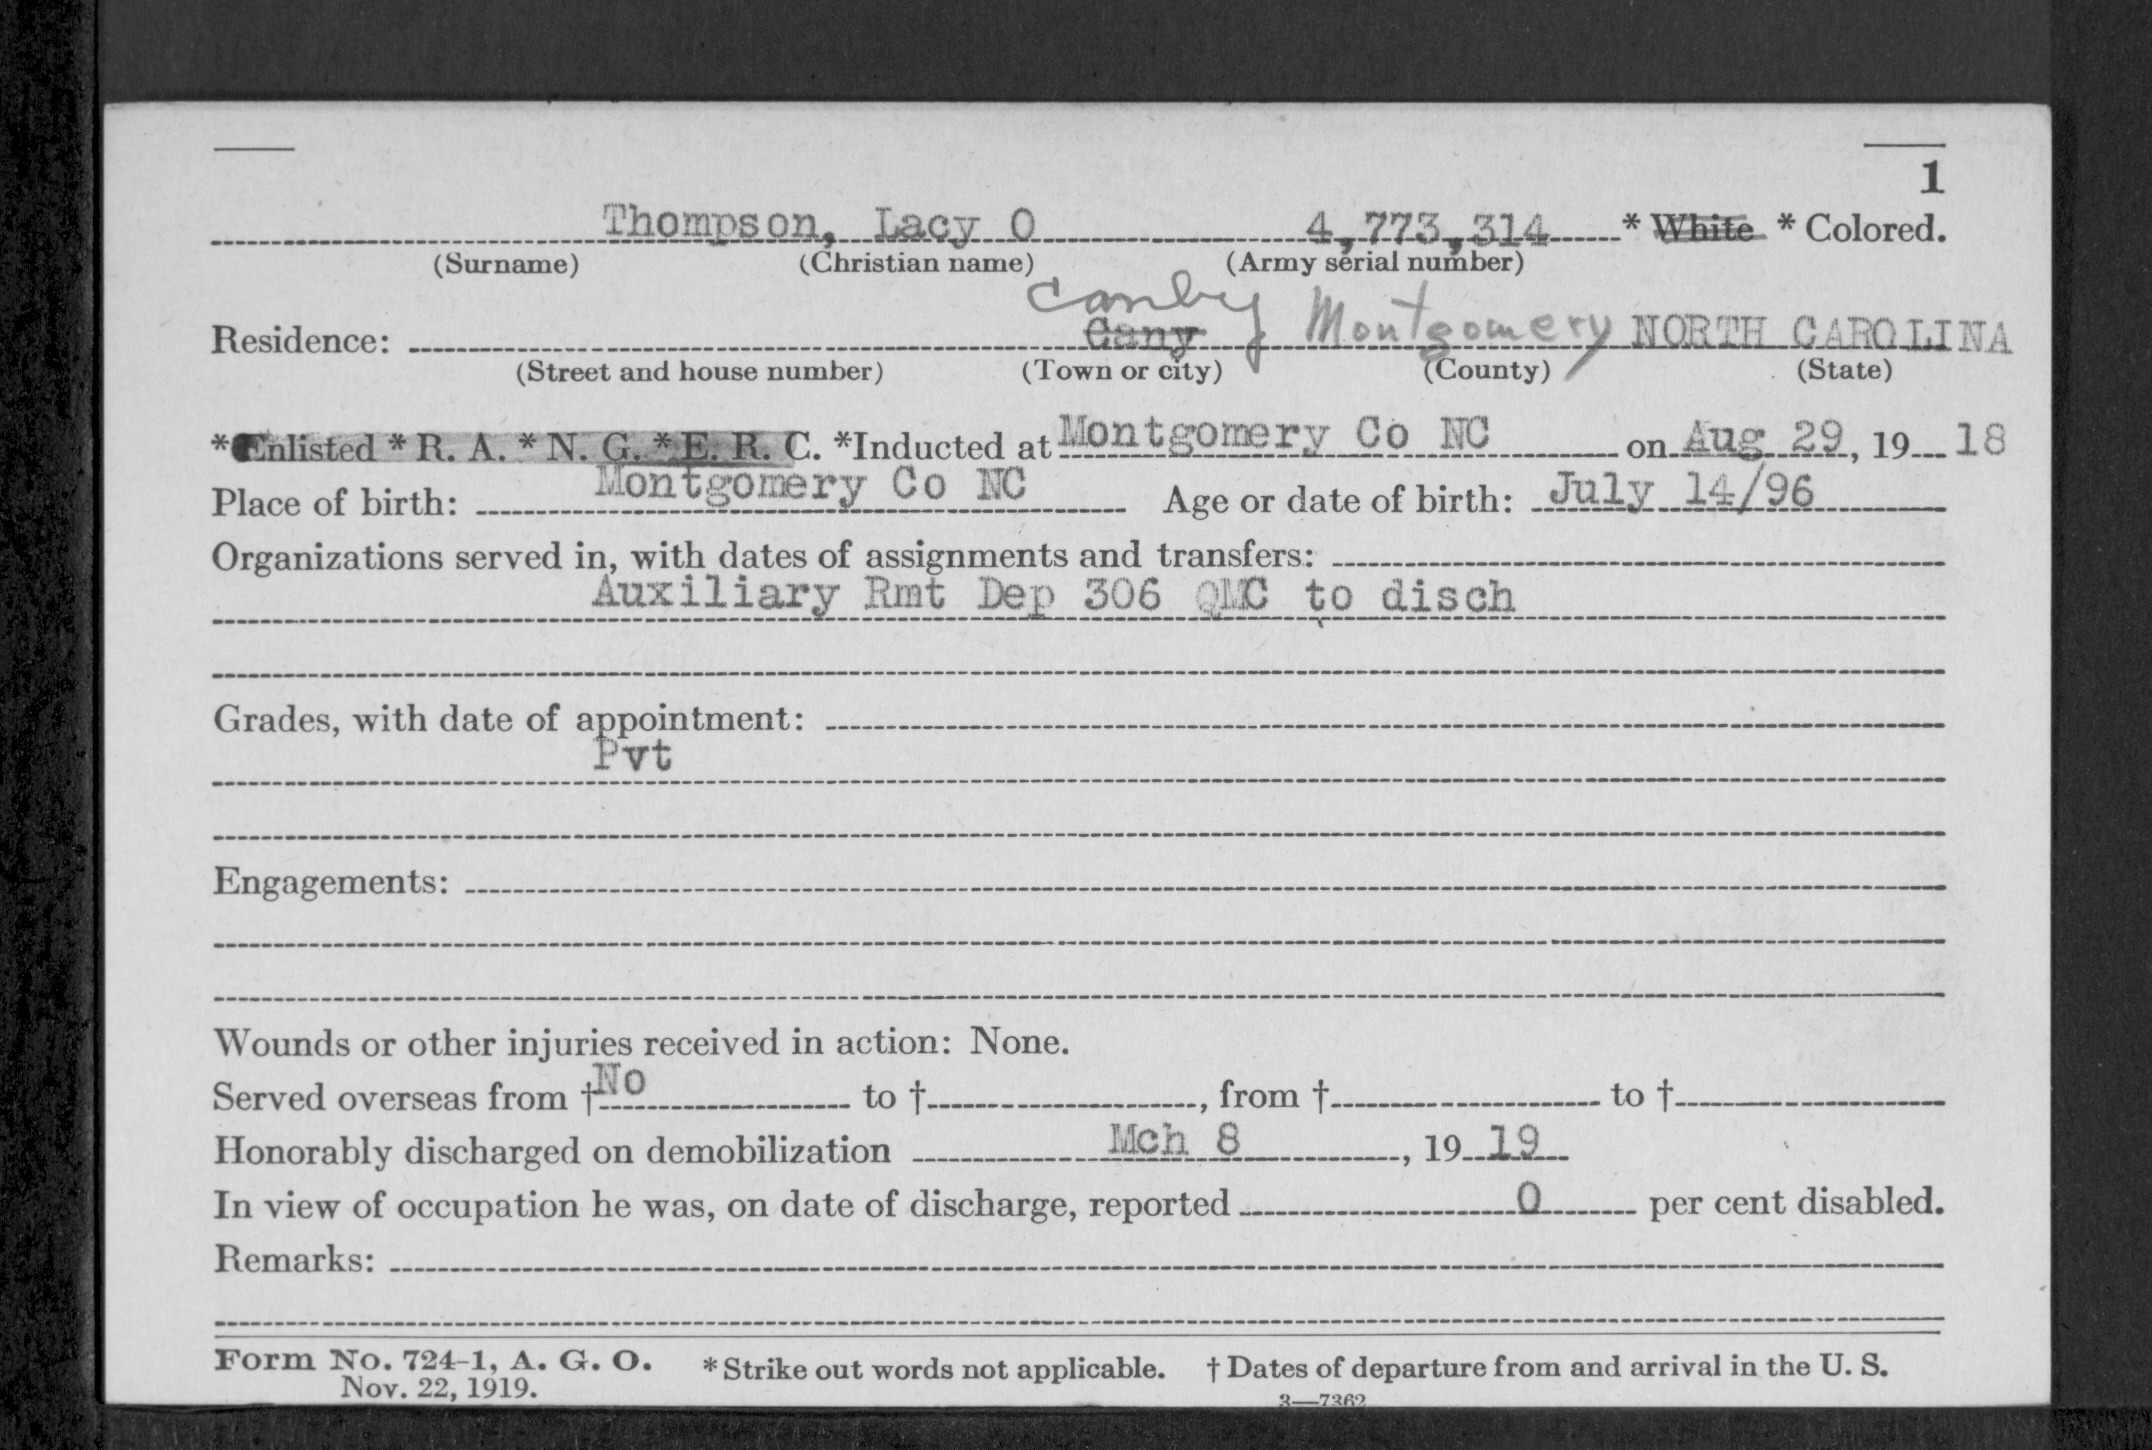 1
Thompson, Lacy O 4,773,314 * White * Colored.
(Surname) (Christian name) (Army serial number)
Canby
Residence: Cany Montgomery NORTH CAROLINA
(Street and house number) (Town or city) (County) (State)
*Enlisted *R. A. *N. G. *E. R. C. *Inducted at Montgomery Co NC on Aug 29, 19 18
Place of birth: Montgomery Co NC Age or date of birth: July 14/96
Organizations served in, with dates of assignments and transfers:
Auxiliary Rmt Dep 306 QMC to disch
Grades, with date of appointment:
Pvt
Engagements:
Wounds or other injuries received in action: None.
Served overseas from † No to †, from † to †
Honorably discharged on demobilization Mch 8, 19 19
In view of occupation he was, on date of discharge, reported 0 per cent disabled.
Remarks:
Form No. 724-1, A. G. O. *Strike out words not applicable. † Dates of departure from and arrival in the U. S.
Nov. 22, 1919.
3—7362